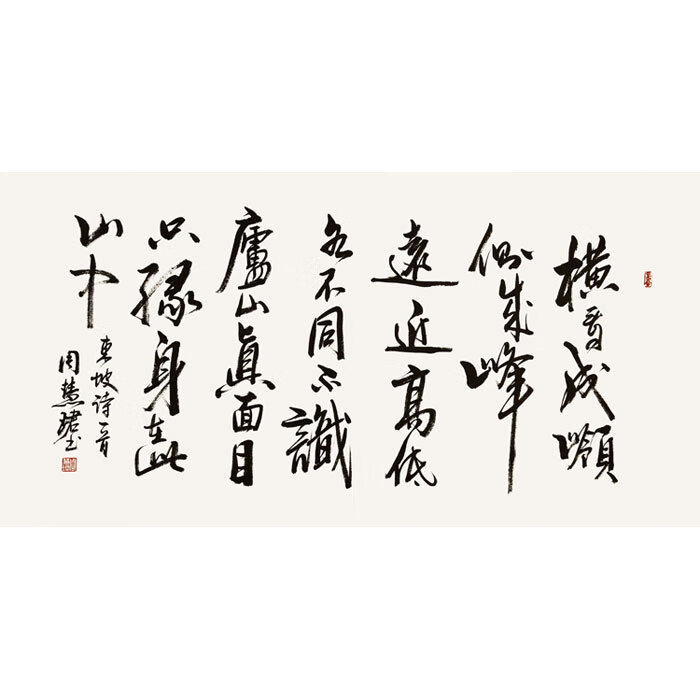 橫看成嶺
側成峰
遠近高低
各不同不識
廬山眞面目
只緣身在此
山中
東坡詩一首
周慧珺书